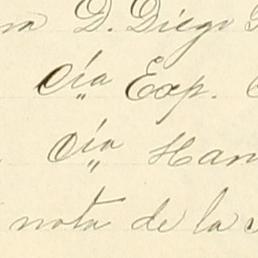 D. Diego
Cía Exp.
Cía Han
nota de la